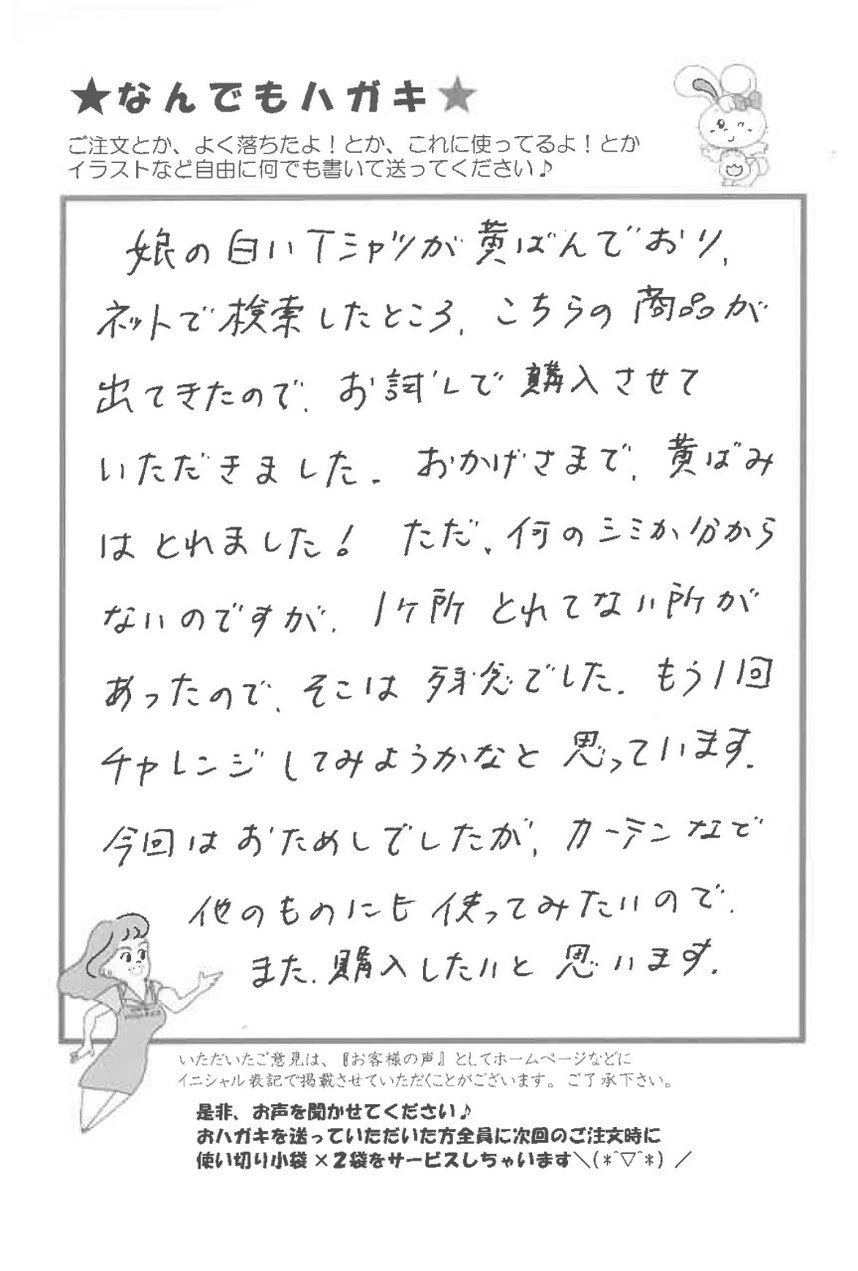 ★なんでもハガキ★
ご注文とか、よく落ちたよ!とか、これに使ってるよ!とか
イラストなど自由に何でも書いて送ってください♪
娘の白いTシャツが黄ばんでおり、
ネットで検索したところ、こちらの商品が
出てきたので、お試しで購入させて
いただきました。おかげさまで、黄ばみ
はとれました! ただ、何のシミか分から
ないのですが、1ケ所とれてない所が
あったので、そこは残念でした。もう1回
チャレンジしてみようかなと思っています。
今回はおためしでしたが、カーテンなど
他のものにも使ってみたいので、
また、購入したいと思います。
いただいたご意見は、『お客様の声』としてホームページなどに
イニシャル表記で掲載させていただくことがございます。ご了承下さい。
是非、お声を聞かせてください♪
おハガキを送っていただいた方全員に次回のご注文時に
使い切り小袋×2袋をサービスしちゃいます＼(*^▽^*)／